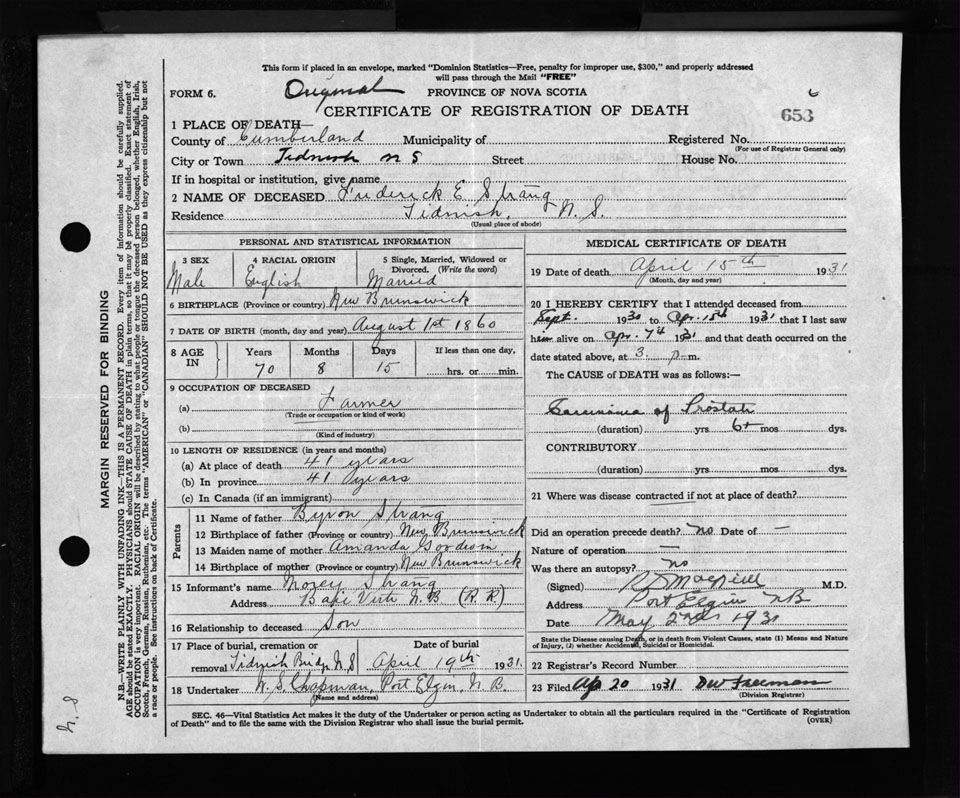 This form if placed in an envelope, marked "Dominion Statistics—Free, penalty for improper use, $300," and properly addressed
will pass through the Mail "FREE"
FORM 6. Original PROVINCE OF NOVA SCOTIA
CERTIFICATE OF REGISTRATION OF DEATH 653
1 PLACE OF DEATH—
County of Cumberland Municipality of Registered No.
(For use of Registrar General only)
City or Town Tidnish N S Street House No.
If in hospital or institution, give name
2 NAME OF DECEASED Frederick E. Strang
Residence Tidnish, N. S.
(Usual place of abode)
PERSONAL AND STATISTICAL INFORMATION
3 SEX 4 RACIAL ORIGIN 5 Single, Married, Widowed or
Divorced. (Write the word)
Male English Married
6 BIRTHPLACE (Province or country) New Brunswick
7 DATE OF BIRTH (month, day and year) August 1st 1860
8 AGE IN Years Months Days If less than one day,
70 8 15 hrs. or min.
9 OCCUPATION OF DECEASED
(a) Farmer
(Trade or occupation or kind of work)
(b)
(Kind of industry)
10 LENGTH OF RESIDENCE (in years and months)
(a) At place of death 41 years
(b) In province 41 years
(c) In Canada (if an immigrant)
Parents
11 Name of father Byron Strang
12 Birthplace of father (Province or country) New Brunswick
13 Maiden name of mother Amanda
14 Birthplace of mother (Province or country) New Brunswick
15 Informant's name Strang
Address Baie Verte N.B (R.R)
16 Relationship to deceased Son
17 Place of burial, cremation or Date of burial
removal Tidnish Bridge N.S April 19th 1931
18 Undertaker W. S. Chapman, Port Elgin, N.B.
(Name and address)
MEDICAL CERTIFICATE OF DEATH
19 Date of death April 15th 1931
(Month, day and year)
20 I HEREBY CERTIFY that I attended deceased from
Sept. 1930 to Apr. 15th 1931 that I last saw
him alive on Apr. 7th 1931 and that death occurred on the
date stated above, at 3 p. m.
The CAUSE OF DEATH was as follows:—
Carcinoma of Prostate
(duration) yrs 6+ mos dys.
CONTRIBUTORY
(duration) yrs. mos. dys.
21 Where was disease contracted if not at place of death?
Did an operation precede death? no Date of —
Nature of operation —
Was there an autopsy? no
(Signed) M.D.
Address Port Elgin NB
Date May 2nd 1931
State the Disease causing Death, or in death from Violent Causes, state (1) Means and Nature
of Injury, (2) whether Accidental, Suicidal or Homicidal.
22 Registrar's Record Number
23 Filed Ap 20 1931 DW Freeman
(Division Registrar)
SEC. 46—Vital Statistics Act makes it the duty of the Undertaker or person acting as Undertaker to obtain all the particulars required in the "Certificate of Registration
of Death" and to file the same with the Division Registrar who shall issue the burial permit. (OVER)
MARGIN RESERVED FOR BINDING
N.B.—WRITE PLAINLY WITH UNFADING INK—THIS IS A PERMANENT RECORD. Every item of information should be carefully supplied.
AGE should be stated EXACTLY. PHYSICIANS should STATE CAUSE OF DEATH in plain terms, so that it may be properly classified. Exact statement of
OCCUPATION is very important. RACIAL ORIGIN will be described by stating to what people or tongue the deceased person belonged, whether English, Irish,
Scotch, French, German, Russian, Ruthenian, etc. The terms "AMERICAN" or "CANADIAN" SHOULD NOT BE USED as they express citizenship but not
a race or people. See instructions on back of Certificate.